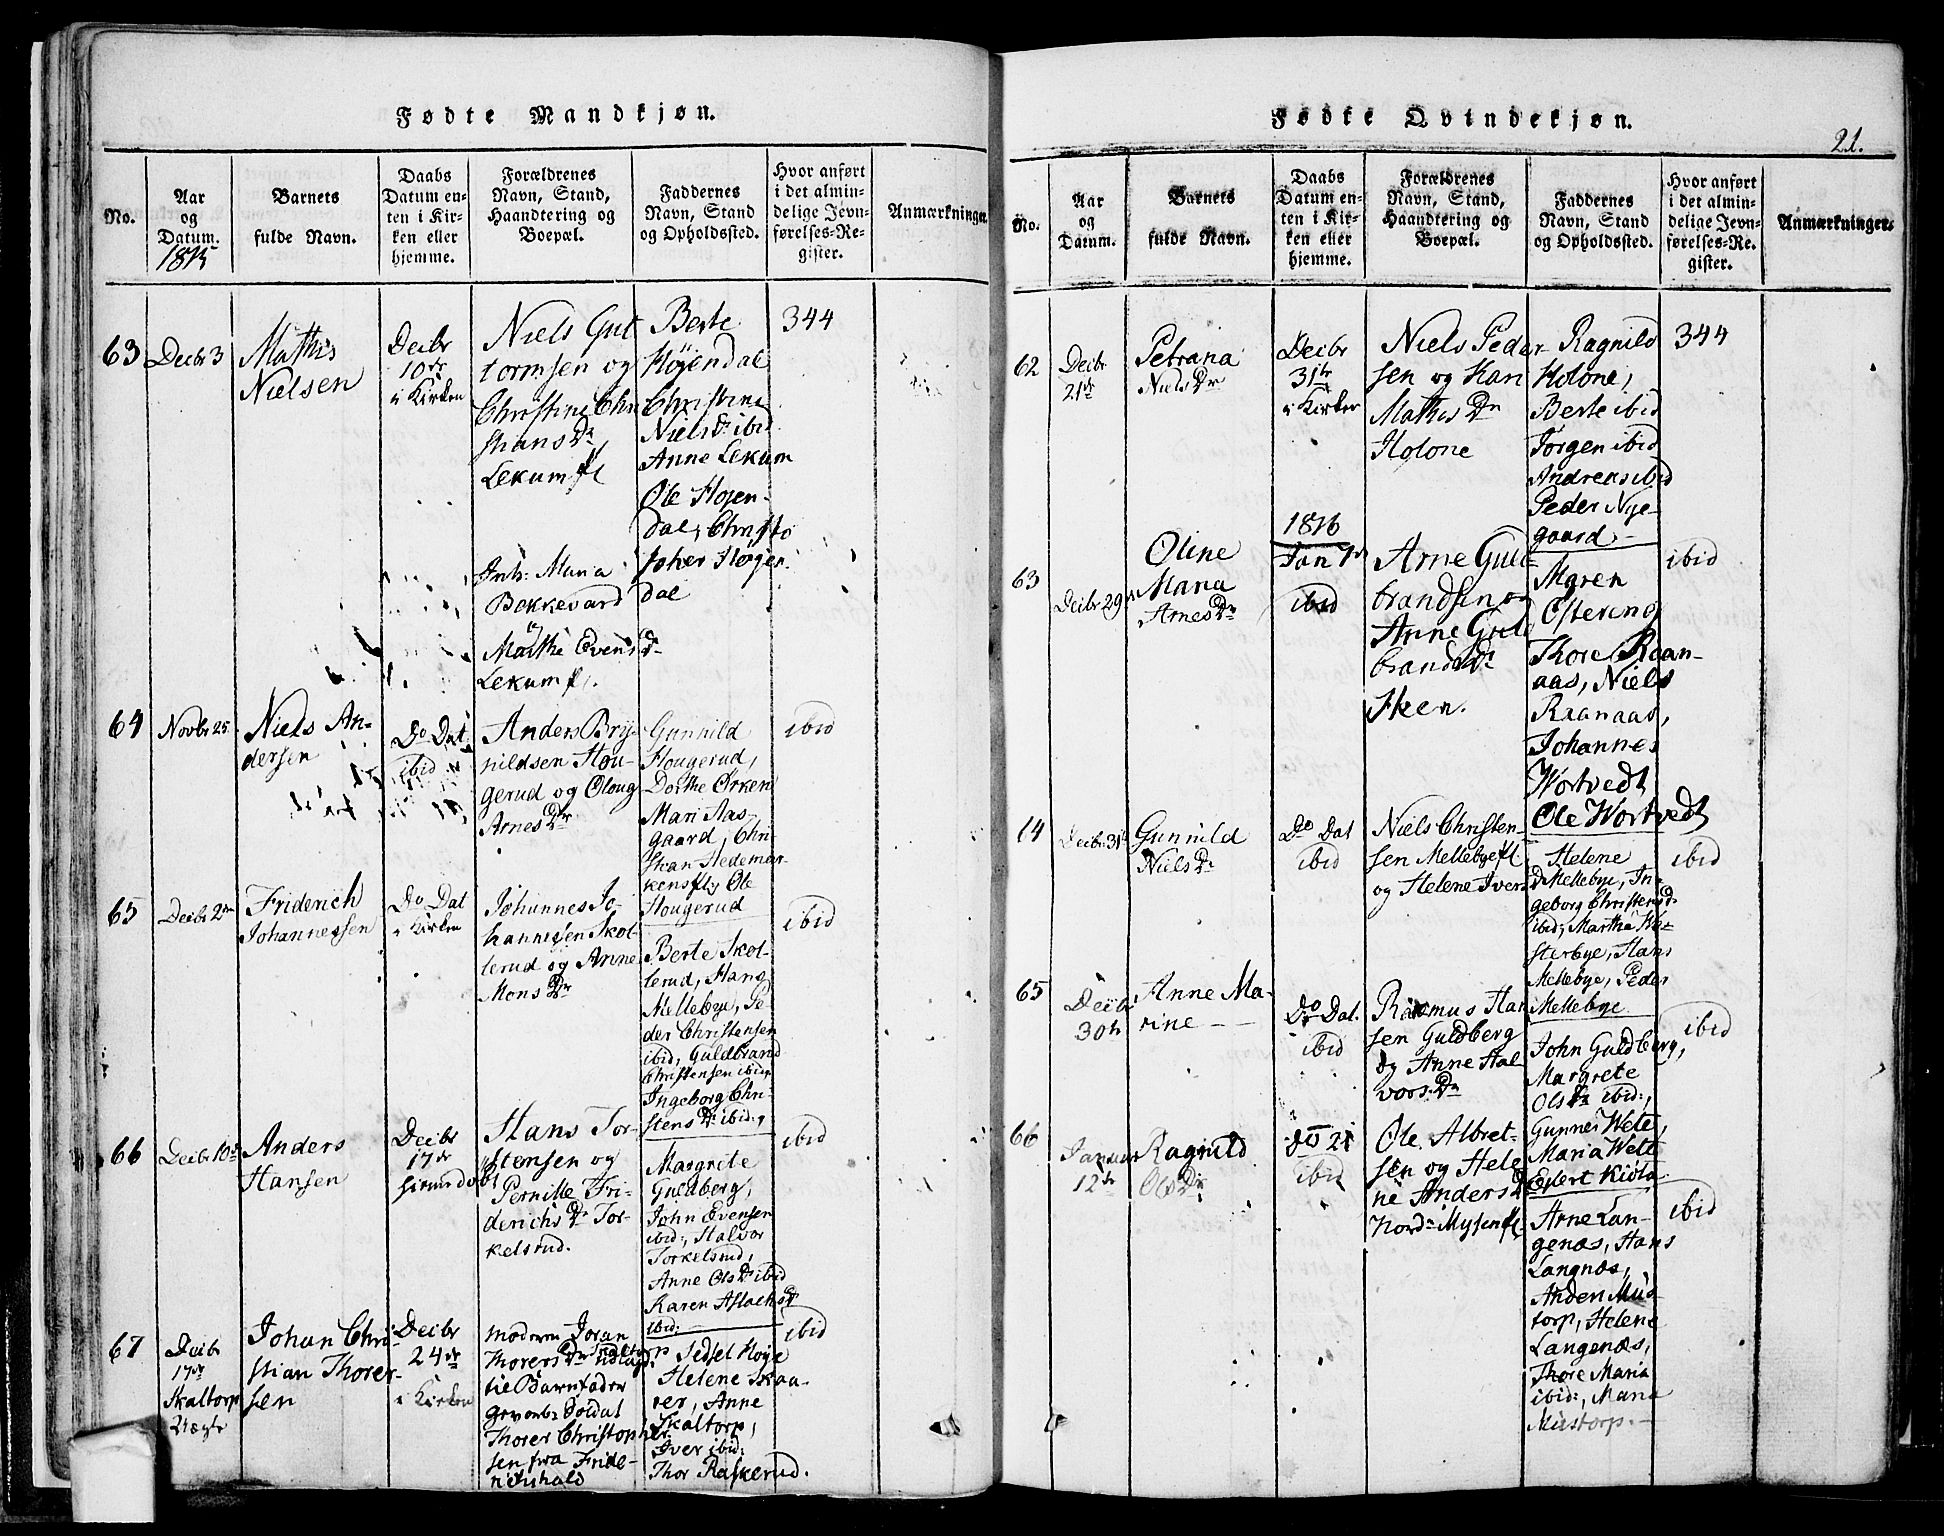 Fødte Mandkjøn.
No.
Aar
og
Datum.
1815
Barnets
fulde Navn.
Daabs
Datum en-
ten i Kir-
ken eller
hjemme.
Forældrenes
Navn, Stand,
Haandtering og
Boepæl.
Faddernes
Navn, Stand
og Opholdssted.
Hvor anført
i det almin-
delige Jevn-
førelses-Re-
gister.
Anmærkninger.
63
Decbr 3
Mathis
Nielsen
Decbr
10de
i Kirken
Niels Gut
tormsen og
Christine Chri
stians Dr
Lekum
Inh: Maria
Bakkevard
Marthe Evens Dr
Lekum
Berte
Højendal
Christine
Niels Dr ibid
Anne Lekum
Ole Højen-
dal, Christo
pher Højen
dal
344
64
Novbr 25
Niels An-
dersen
Do Dat
ibid
Anders Bry-
nildsen Hou-
gerud og Oloug
Arnes Dr
Gunnild
Hougerud,
Dorthe Ørken
Mari Aas-
gaard, Chri
stian Hedemar
kens, Ole
Hougerud
ibid
65
Decbr 2
Friderich
Johannessen
Do Dat
i Kirken
Johannes Jo-
hannesen Skol
lerud og Anne
Mons Dr
Berte Skol-
lerud, Hans
Mellebye, Pe-
der Christensen
ibid, Guldbrand
Christensen ibid,
Ingeborg Chri-
stens Dr ibid:,
ibid
66
Decbr 10de
Anders
Hansen
Decbr
17de
hjemmedøbt
Hans Tor-
stensen og
Pernille Fri-
derichs Dr Tor-
kelsrud.
Margrete
Guldberg,
John Evensen
ibid:, Halvor
Torkelsrud,
Anne Ols Dr ibid
Karen Aslachs Dr
ibid:
ibid
67
Decbr
17de
Skaltorp
Johan Chri-
stian Thorer-
sen
Decbr
24de
i Kirken
Moderen Joran
Thorers Dr Skaltorp
Barnefader
Soldat
Thorer Christopher
sen fra Fride-
richshald
Sedsel Høye
Helene Skaa-
rer, Anne
Skaltorp,
Iver ibid:
Thor Raskerud.
ibid
Fødte Qvindekjøn.
21.
No.
Aar
og
Datum.
Barnets
fulde Navn.
Daabs
Datum en-
ten i Kir-
ken eller
hjemme.
Forældrenes
Navn, Stand,
Haandtering og
Boepæl.
Faddernes
Navn, Stand
og Opholdssted.
Hvor anført
i det almin-
delige Jevn-
førelses-Re-
gister.
Anmærkninger.
62
Decbr
21de
Petrana
Niels Dr
Decbr
31te
i Kirken
Niels Peder-
sen og Kari
Mathis Dr
Holone
Ragnild
Holone,
Berte ibid
Jørgen ibid
Andreas ibid
Peder Nye-
gaard
344
63
Decbr 29
Oline
Maria
Arnes Dr
1816
Jan 7de
ibid
Arne Guld-
brandsen og
Anne Guld
brands Dr
Heen.
Maren
Østereng
Thore Raan-
aas, Niels
Raanaas,
Johannes
Wortvedt
Ole Wortvedt
ibid
14
Decbr 31te
Gunnild
Niels Dr
Do Dat
ibid
Niels Christen-
sen Mellebye
og Helene Ivers Dr
Helene
Mellebye, In-
geborg Christens Dr
ibid, Marthe We-
sterbye, Hans
Mellebye, Peder
Mellebye
ibid
65
Decbr
30te
Anne Ma-
rine
Do Dat.
ibid
Rasmus Han
sen Guldberg
og Anne Hal
vors Dr
John Guldberg,
Margrete
Ols Dr ibid:,
Gunnes Wete,
Maria Wete
Eylert Kiøla
ibid
66
Januar
12te
Ragnild
Ols Dr
D 21
ibid
Ole Albret-
sen og Hele
ne Anders Dr
Nord-Mysen
Arne Lan-
genæs, Hans
Langnæs,
Anders Mus-
torp, Helene
Langenæs,
Thore Maria
ibid:, Maria
Mustorp.
ibid